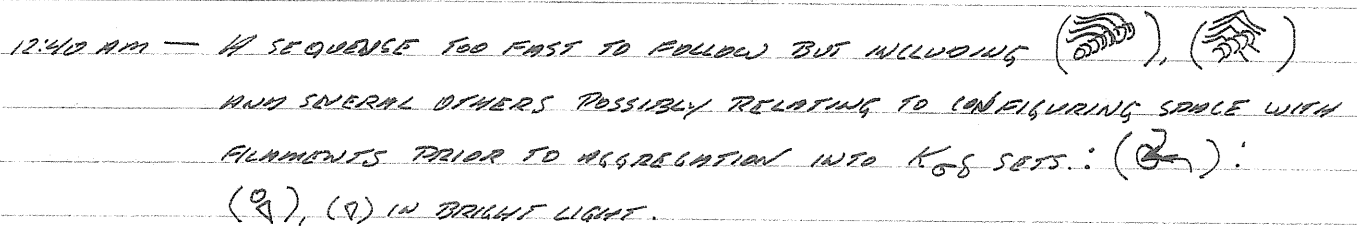 12:40 AM — A SEQUENSE TOO FAST TO FOLLOW BUT INCLUDING ( ), ( )
AND SEVERAL OTHERS POSSIBLY RELATING TO CONFIGURING SPACE WITH
FILAMENTS PRIOR TO AGGREGATION INTO Kσδ SETS.: ( ):
( ), ( ) IN BRIGHT LIGHT.